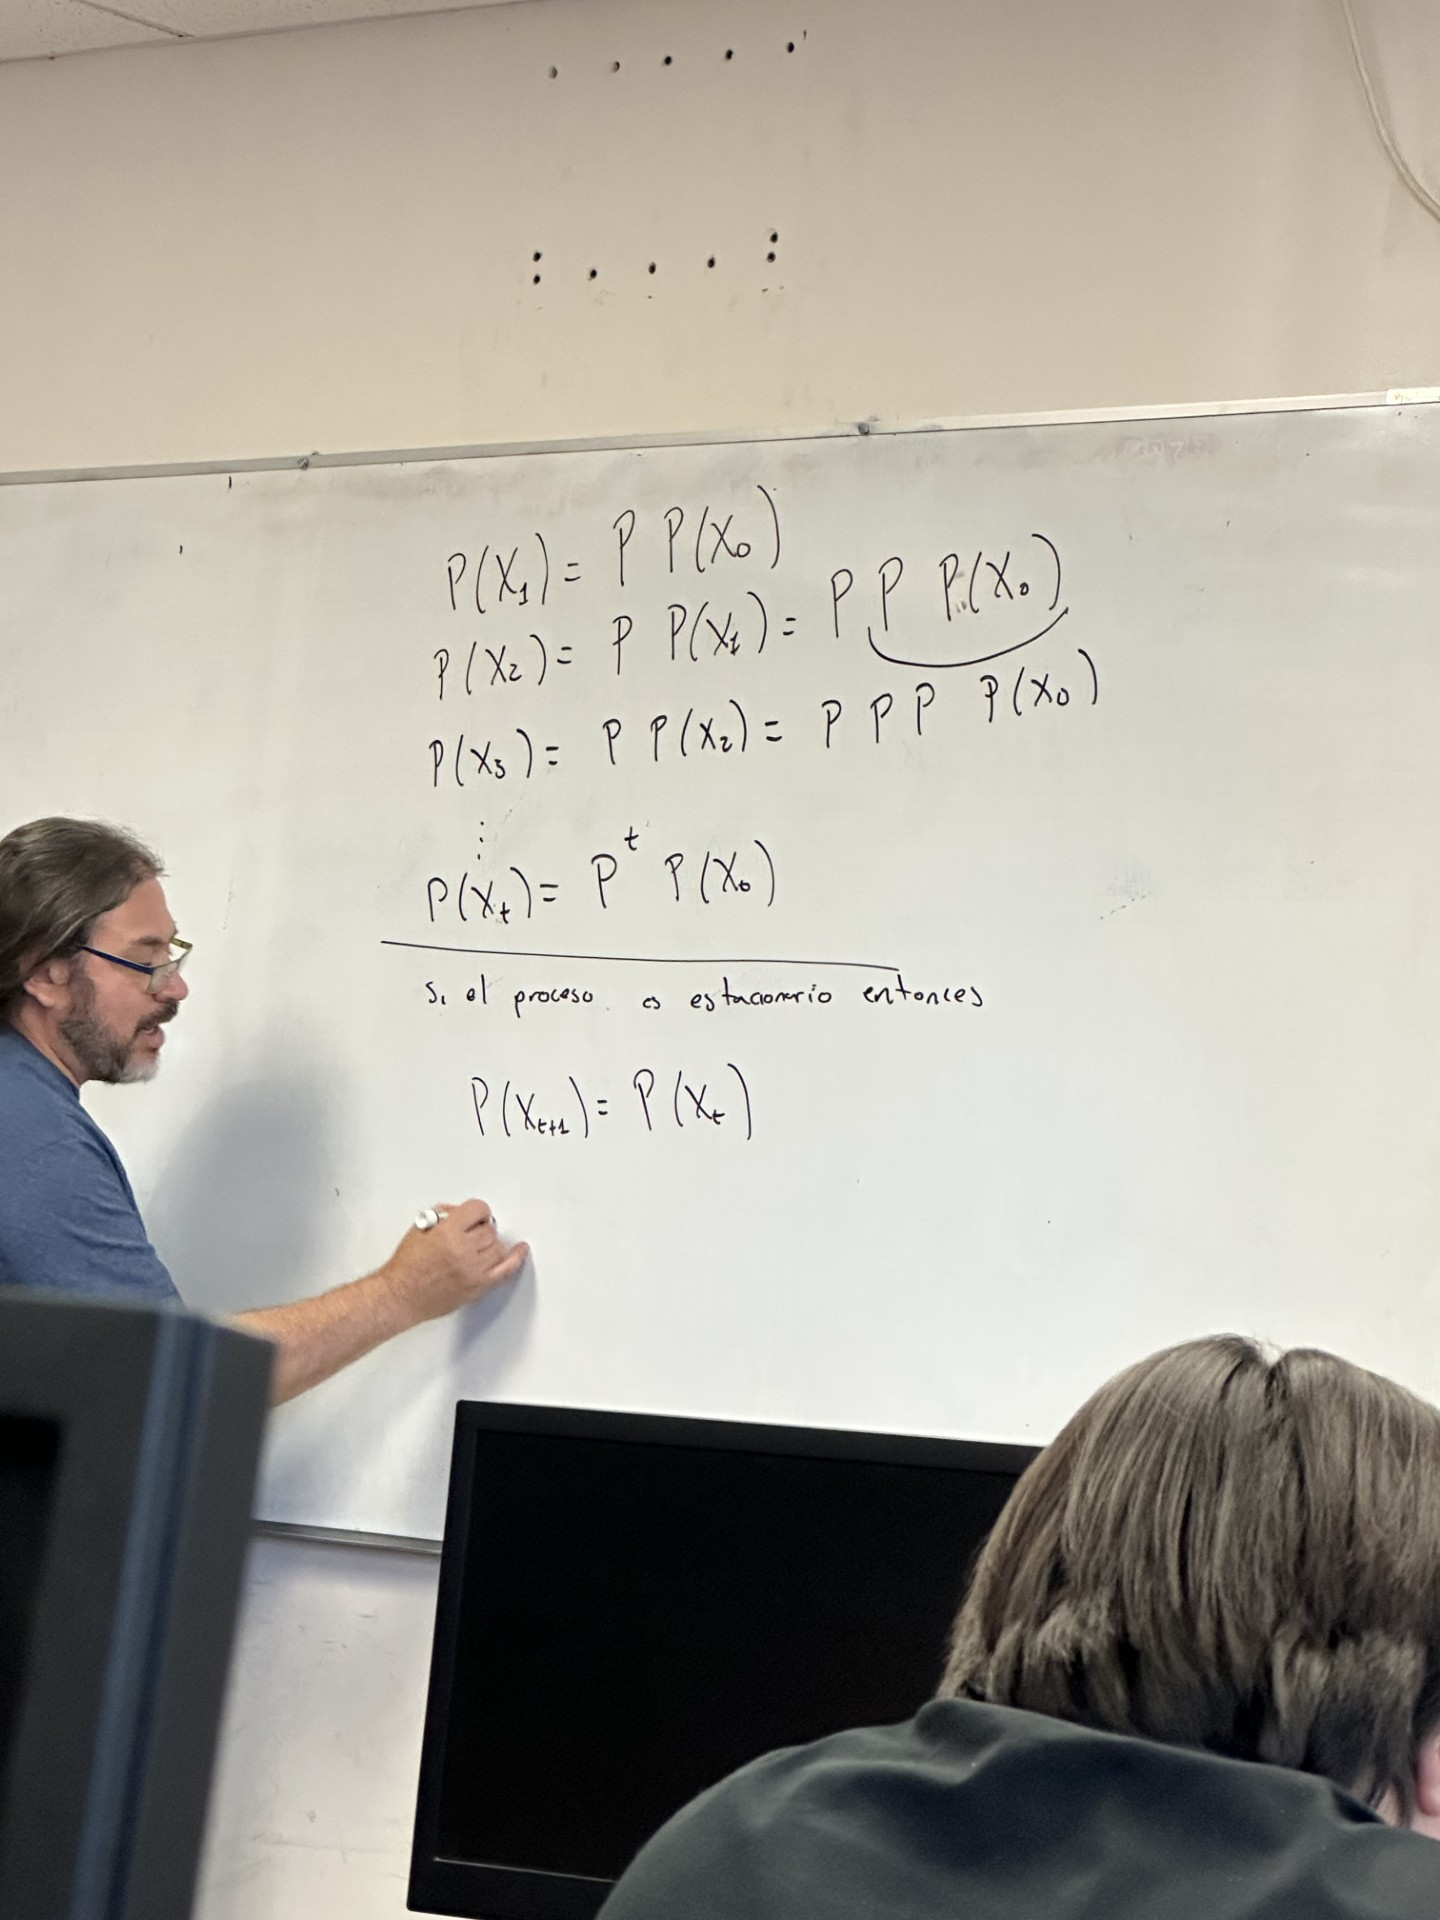 P(X₁) = P P(X₀)
P(X₂) = P P(X₁) = P P P(X₀)
P(X₃) = P P(X₂) = P P P P(X₀)
⋮
P(Xₜ) = Pᵗ P(X₀)
Si el proceso es estacionario entonces
P(Xₜ₊₁) = P(Xₜ)